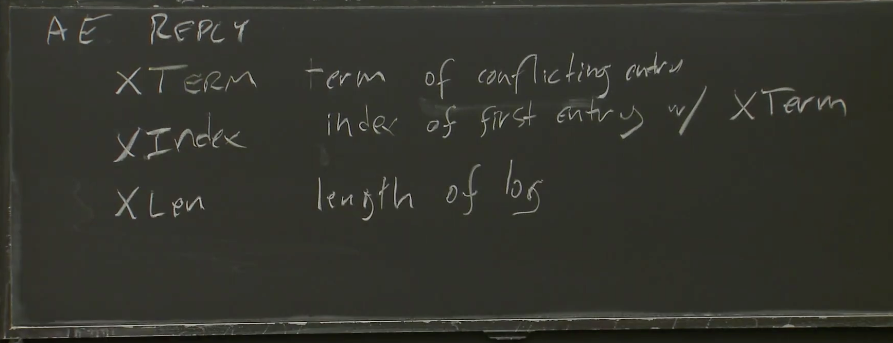 AE REPLY
XTERM term of conflicting entry
XIndex index of first entry w/ XTerm
XLen length of log